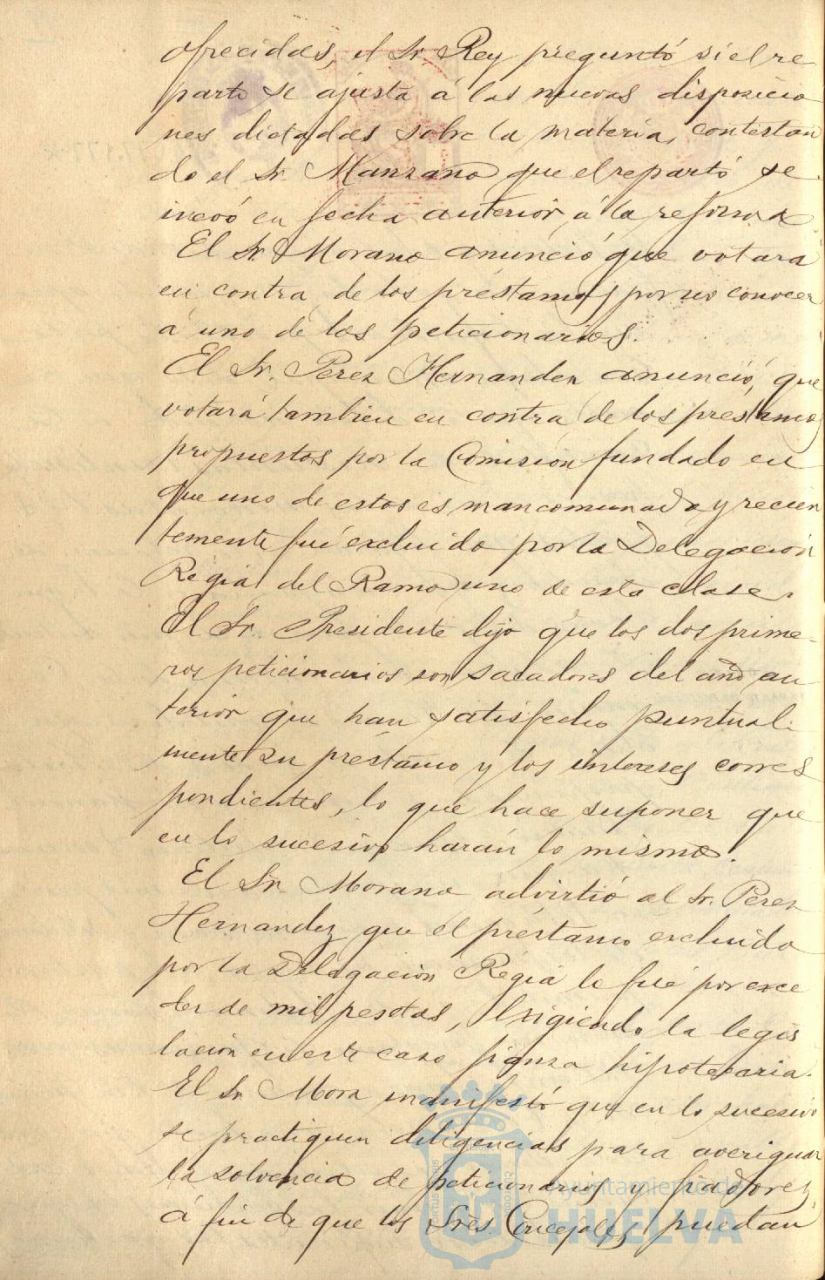 ofrecidas, el Sr. Rey preguntó si el re
parto se ajusta á las nuevas disposicio
nes dictadas sobre la materia, contestan
do el Sr. Manzano que el repartó se
inció en fecha anterior á la reforma
El Sr. Morano anunció que votará
en contra de los préstamos por no conocer
á uno de los peticionarios.
El Sr. Perez Hernandez anunció, que
votará tambien en contra de los prestamos
propuestos por la Comisión fundado en
que uno de estos es mancomunado y recien
temente fué excluido por la Delegación
Régia del Ramo uno de esta clase.
El Sr. Presidente dijo que los dos prime-
ros peticionarios son sacadores del año an
terior que han satisfecho puntual-
mente su préstamo y los intereses corres
pondientes, lo que hace suponer que
en lo sucesivo harán lo mismo.
El Sr. Morano advirtió al Sr. Perez
Hernandez que el préstamo excluido
por la Delegación Régia lo fué por exce
der de mil pesetas, exigiendo la legis
lación en este caso fianza hipotecaria.
El Sr. Mora manifestó que en lo sucesivo
se practiquen diligencias para averiguar
la solvencia de peticionarios y fiadores,
á fin de que los Sres. Concejales puedan
ayuntamiento de
HUELVA